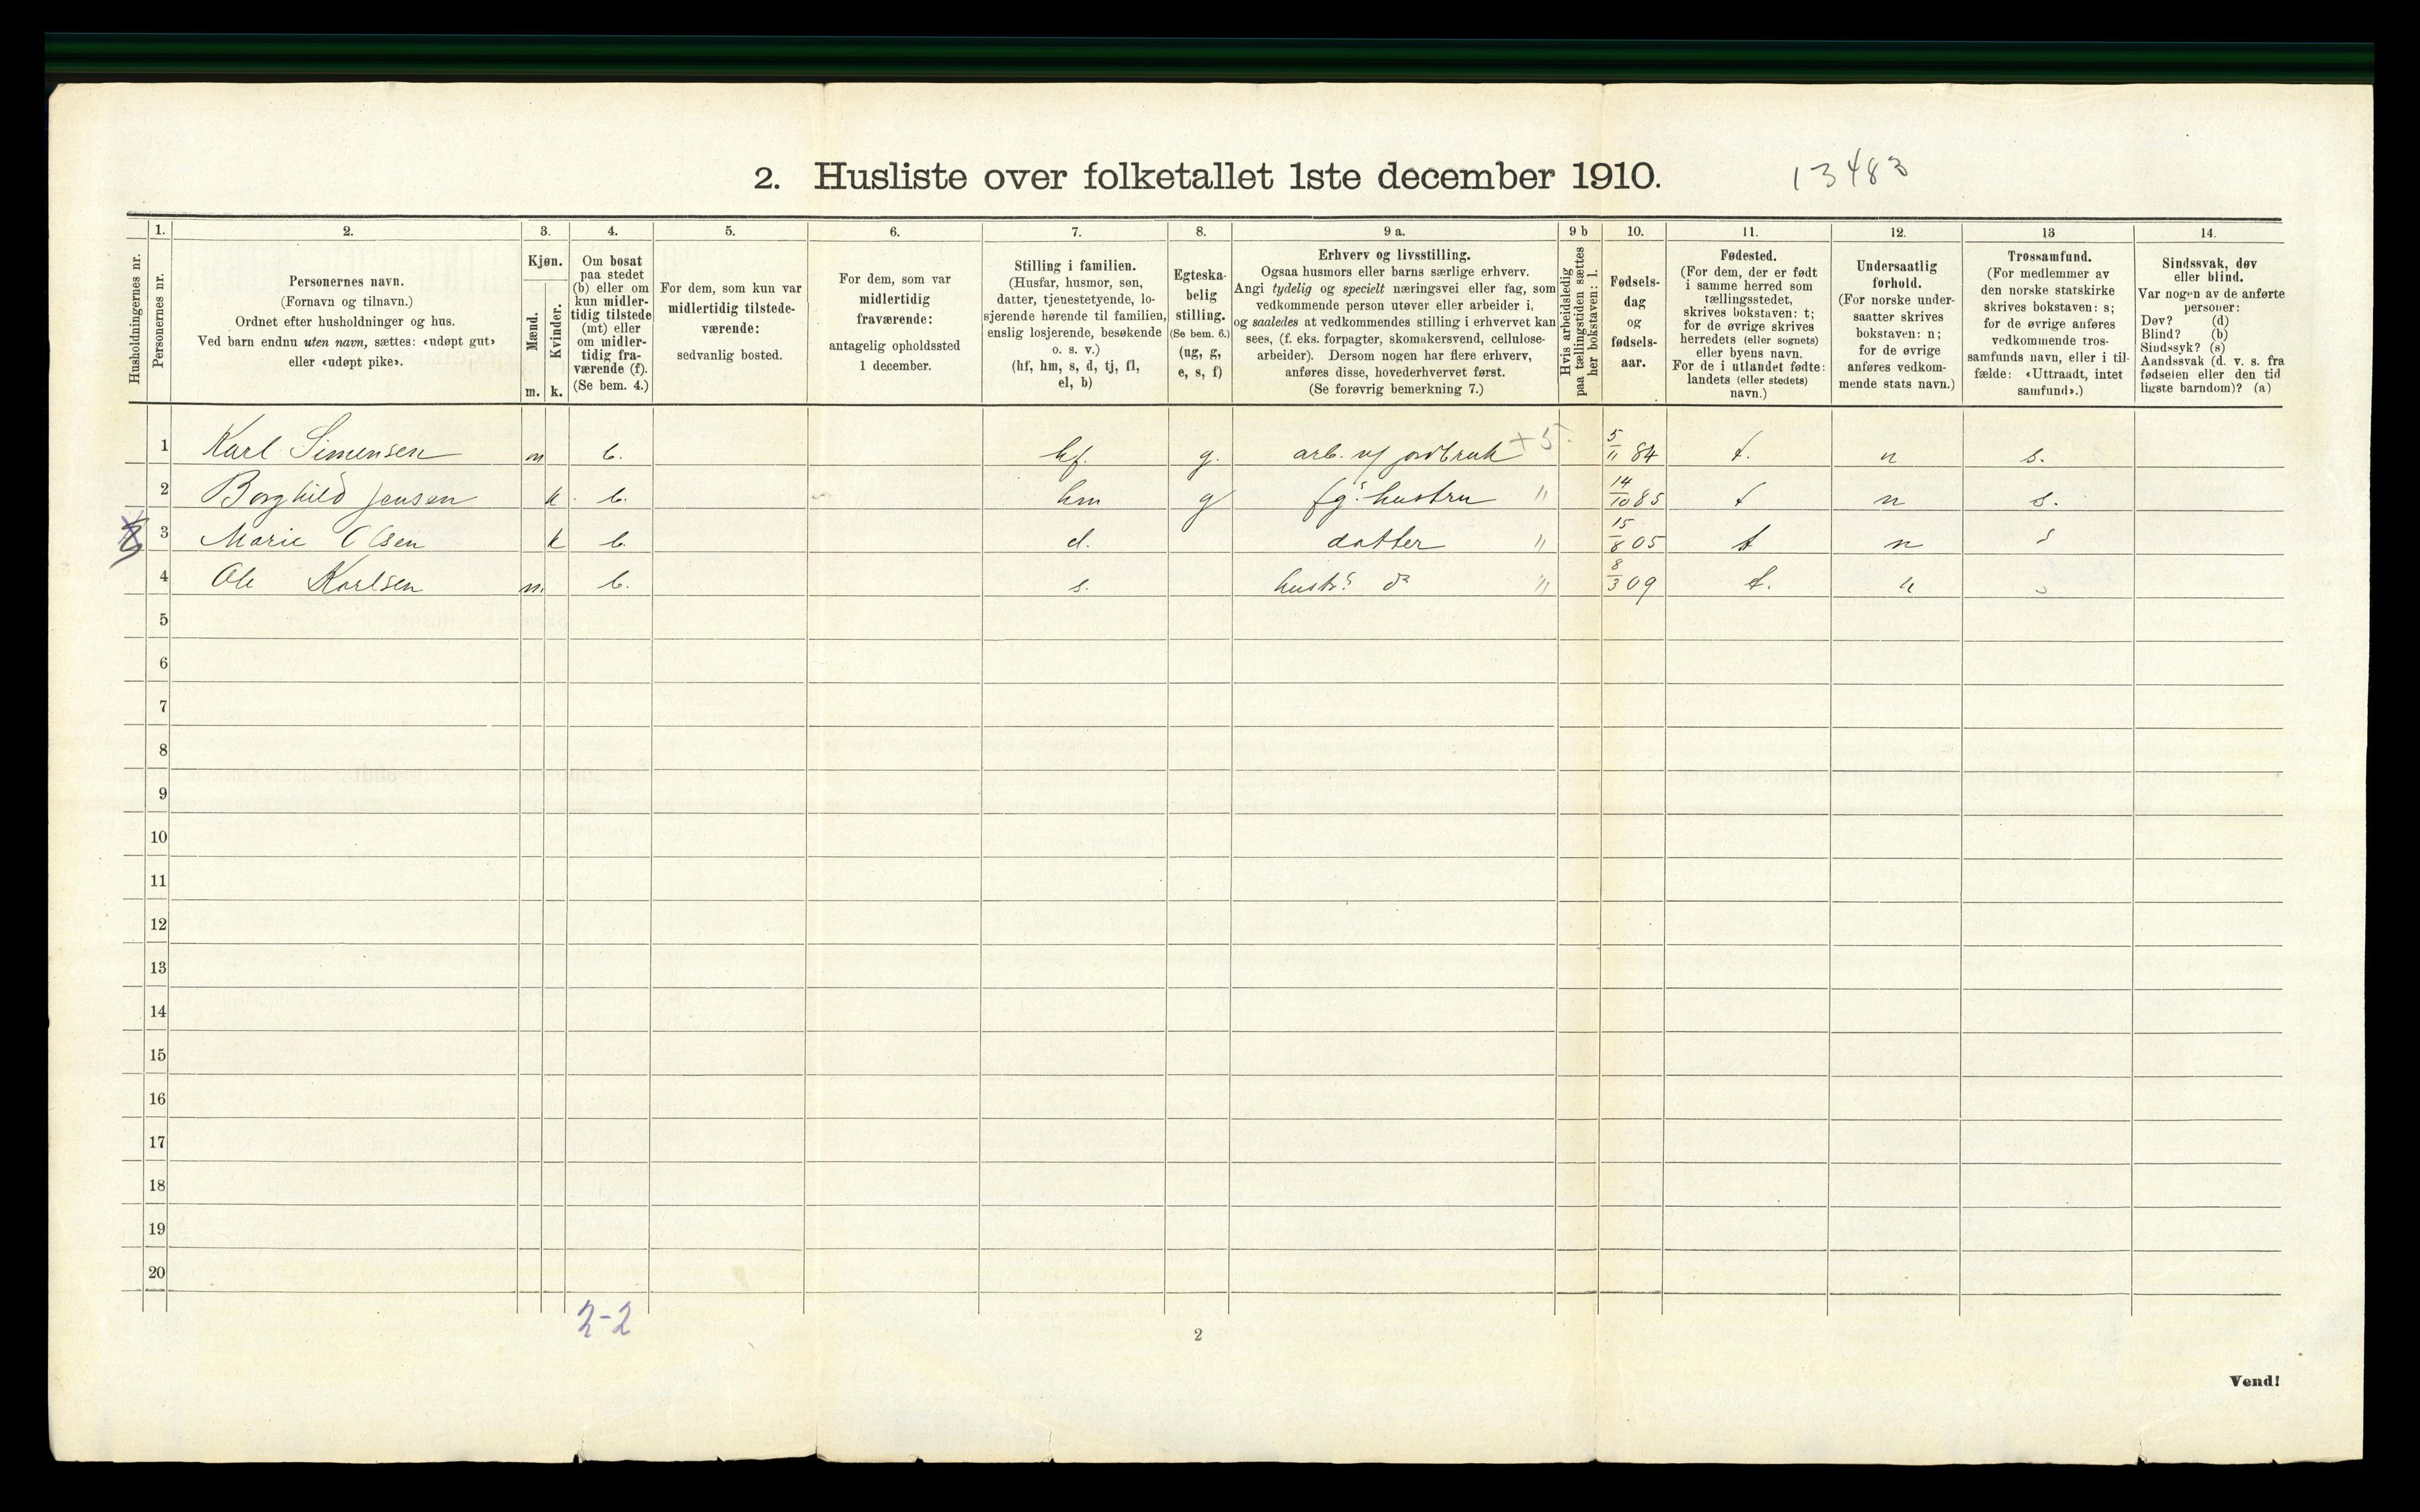 2. Husliste over folketallet 1ste december 1910.
13483
Husholdningernes nr.
1.
Personernes nr.
2.
Personernes navn.
(Fornavn og tilnavn.)
Ordnet efter husholdninger og hus.
Ved barn endnu uten navn, sættes: «udøpt gut»
eller «udøpt pike».
3.
Kjøn.
Mænd.
Kvinder.
m. k.
4.
Om bosat
paa stedet
(b) eller om
kun midler-
tidig tilstede
(mt) eller
om midler-
tidig fra-
værende (f).
(Se bem. 4.)
5.
For dem, som kun var
midlertidig tilstede-
værende:
sedvanlig bosted.
6.
For dem, som var
midlertidig
fraværende:
antagelig opholdssted
1 december.
7.
Stilling i familien.
(Husfar, husmor, søn,
datter, tjenestetyende, lo-
sjerende hørende til familien,
enslig losjerende, besøkende
o. s. v.)
(hf, hm, s, d, tj, fl,
el, b)
8.
Egteska-
belig
stilling.
(Se bem. 6.)
(ug, g,
e, s, f)
9 a.
Erhverv og livsstilling.
Ogsaa husmors eller barns særlige erhverv.
Angi tydelig og specielt næringsvei eller fag, som
vedkommende person utøver eller arbeider i,
og saaledes at vedkommendes stilling i erhvervet kan
sees, (f. eks. forpagter, skomakersvend, cellulose-
arbeider). Dersom nogen har flere erhverv,
anføres disse, hovederhvervet først.
(Se forøvrig bemerkning 7.)
9 b
Hvis arbeidsledig
paa tællingstiden sættes
her bokstaven: l.
10.
Fødsels-
dag
og
fødsels-
aar.
11.
Fødested.
(For dem, der er født
i samme herred som
tællingsstedet,
skrives bokstaven: t;
for de øvrige skrives
herredets (eller sognets)
eller byens navn.
For de i utlandet fødte:
landets (eller stedets)
navn.)
12.
Undersaatlig
forhold.
(For norske under-
saatter skrives
bokstaven: n;
for de øvrige
anføres vedkom-
mende stats navn.)
13
Trossamfund.
(For medlemmer av
den norske statskirke
skrives bokstaven: s;
for de øvrige anføres
vedkommende tros-
samfunds navn, eller i til-
fælde: «Uttraadt, intet
samfund».)
14.
Sindssvak, døv
eller blind.
Var nogen av de anførte
personer:
Døv? (d)
Blind? (b)
Sindssyk? (s)
Aandssvak (d. v. s. fra
fødselen eller den tid
ligste barndom)? (a)
1 Karl Simensen m b. hf. g. arb. v/ jordbruk +5. 5/11 84 t. n s.
2 Borghild Jensen k. b. hm g fg: hustru " 14/10 85 t n s.
3 Marie Olsen k b. d. datter " 15/8 05 t n s
4 Ole Karlsen m. b. s. hustr: do " 8/3 09 t. n s
5
6
7
8
9
10
11
12
13
14
15
16
17
18
19
20
2-2
2
Vend!